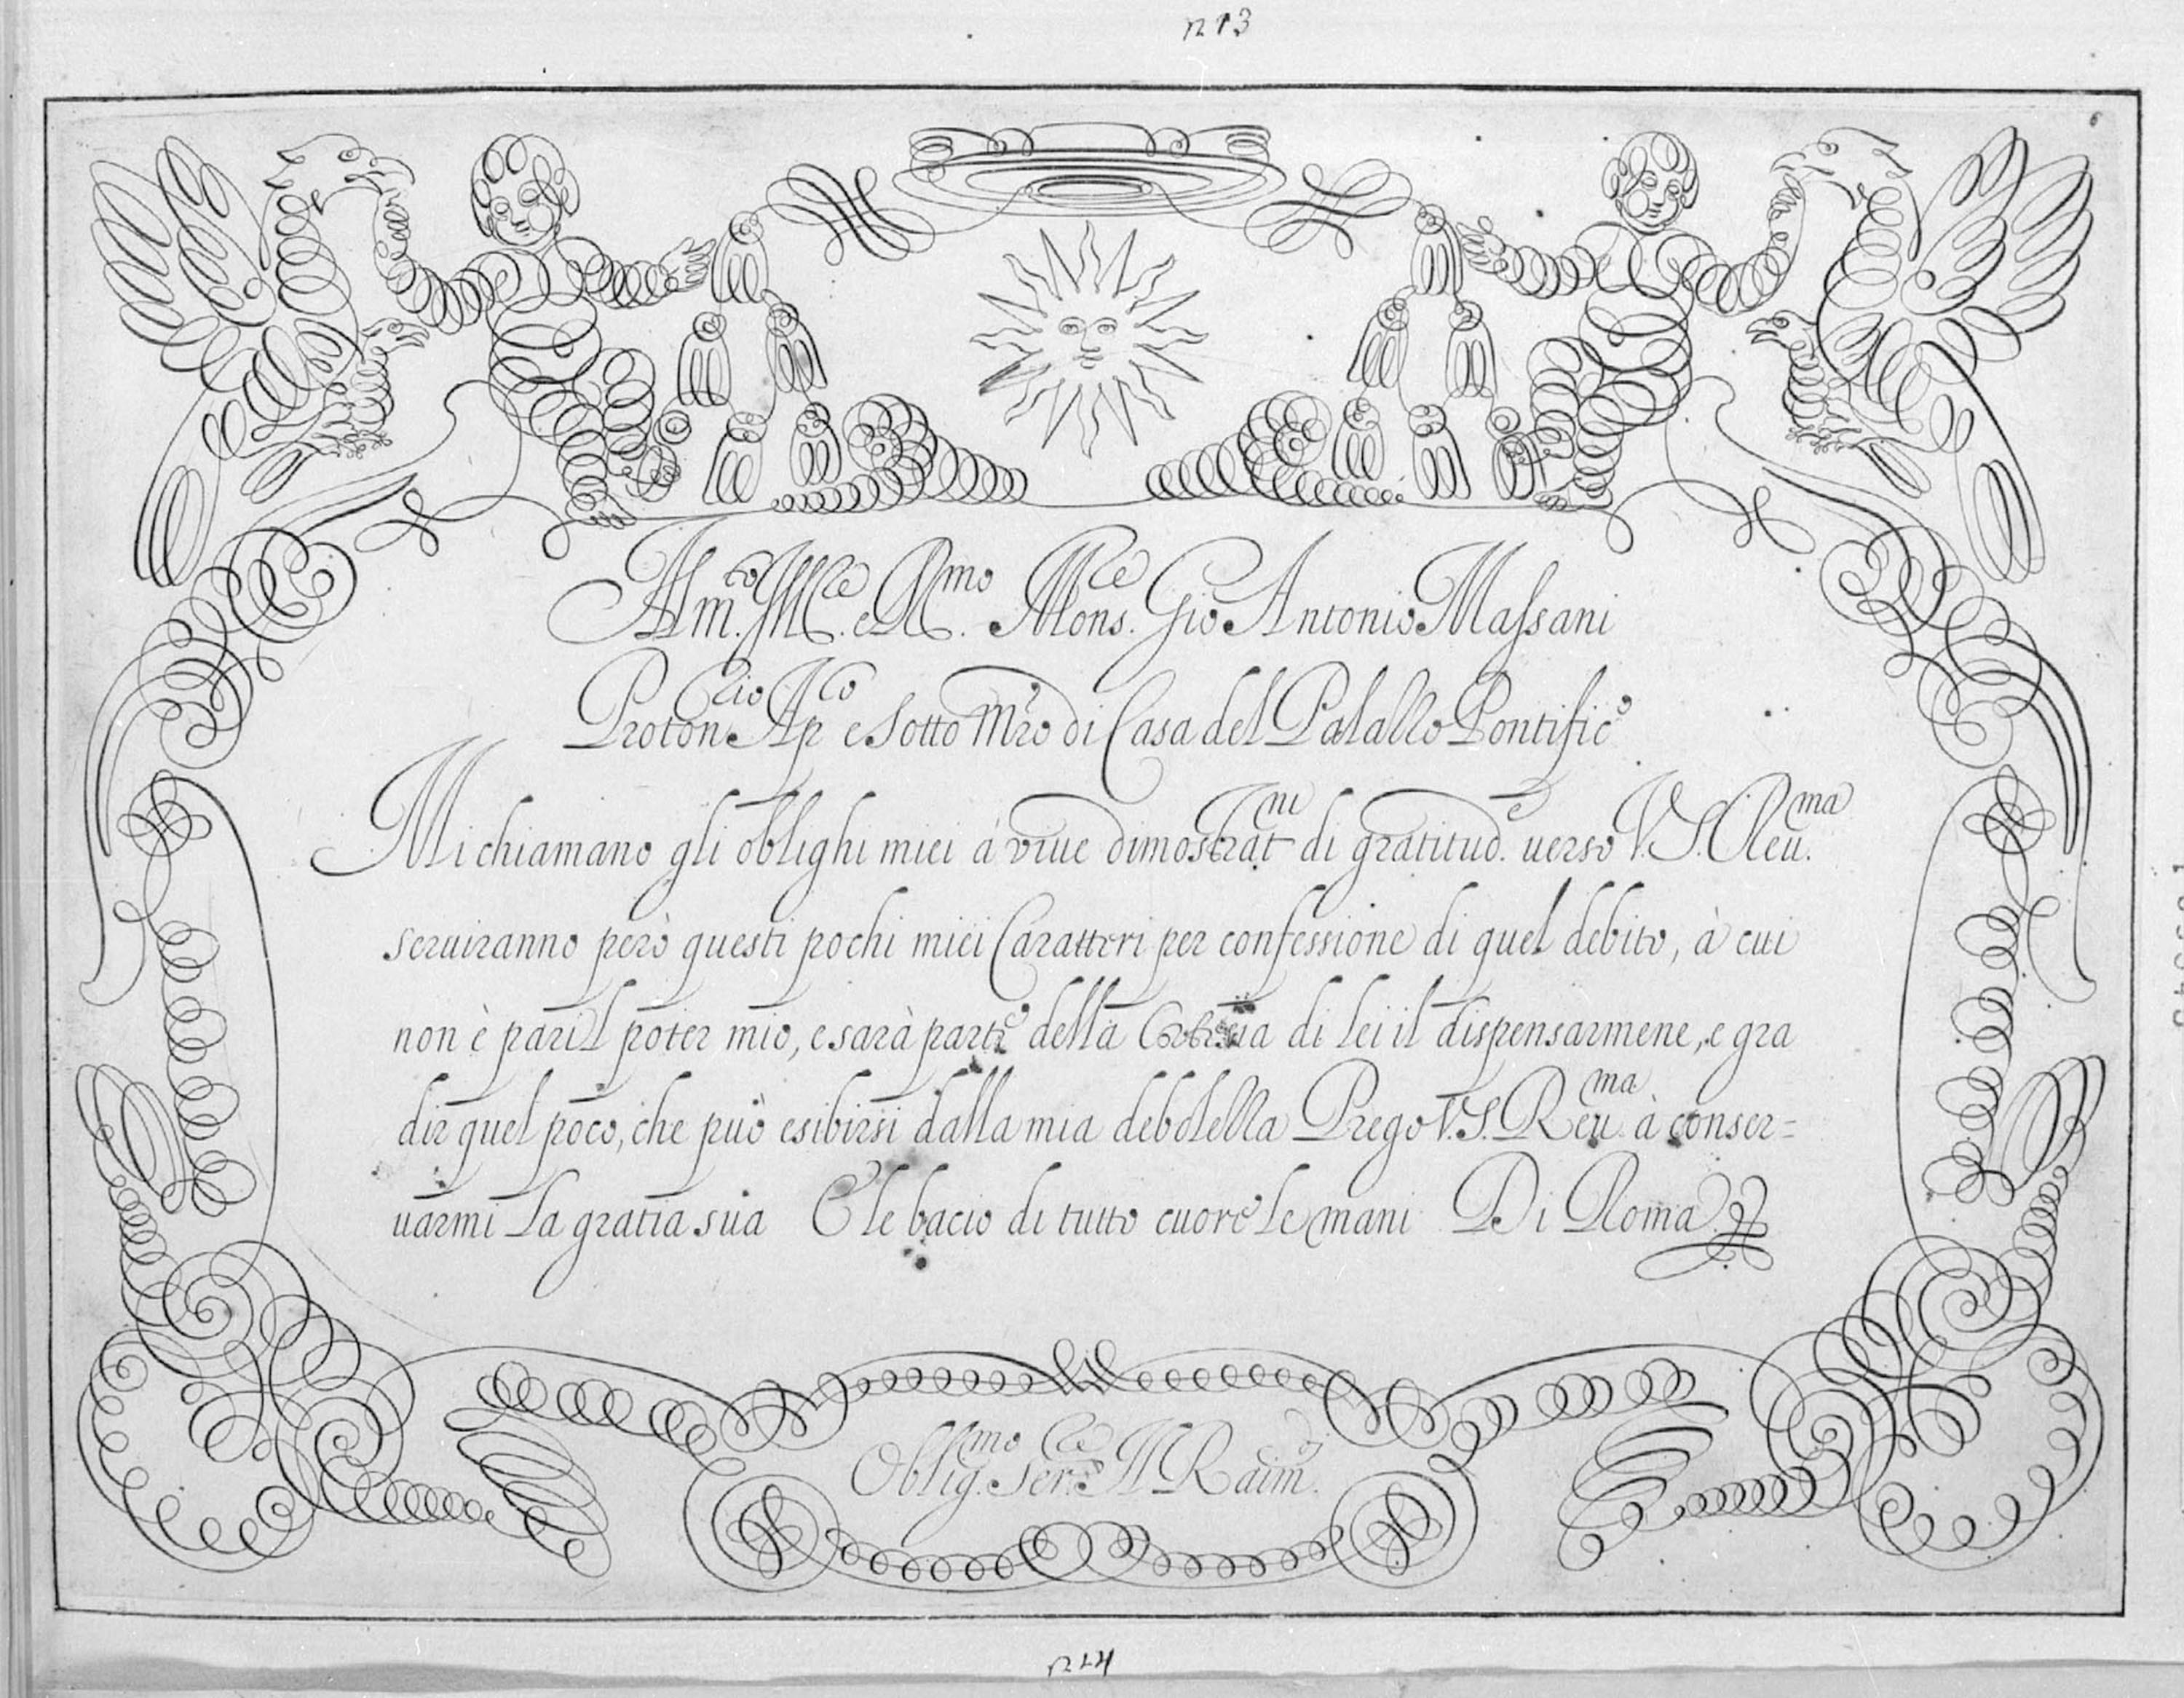 n 13
6
Al m.to Ill.re e R.mo Mons.re Gio Antonio Massani
Proton.rio Ap.co e Sotto Mro di Casa del Palazzo Pontific.o
Mi chiamano gli oblighi miei à viue dimostrat.ni di gratitud.e uerso V.S. Reu.ma
seruiranno però questi pochi miei Caratteri per confessione di quel debito, à cui
non è pari il poter mio, e sarà parte della di lei il dispensarmene, e gra
dir quel poco, che può esibirsi dalla mia debolezza Prego V.S. Reu.ma à conser=
uarmi la gratia sua E le bacio di tutto cuore le mani Di Roma
Oblig.mo Ser.re
n 14